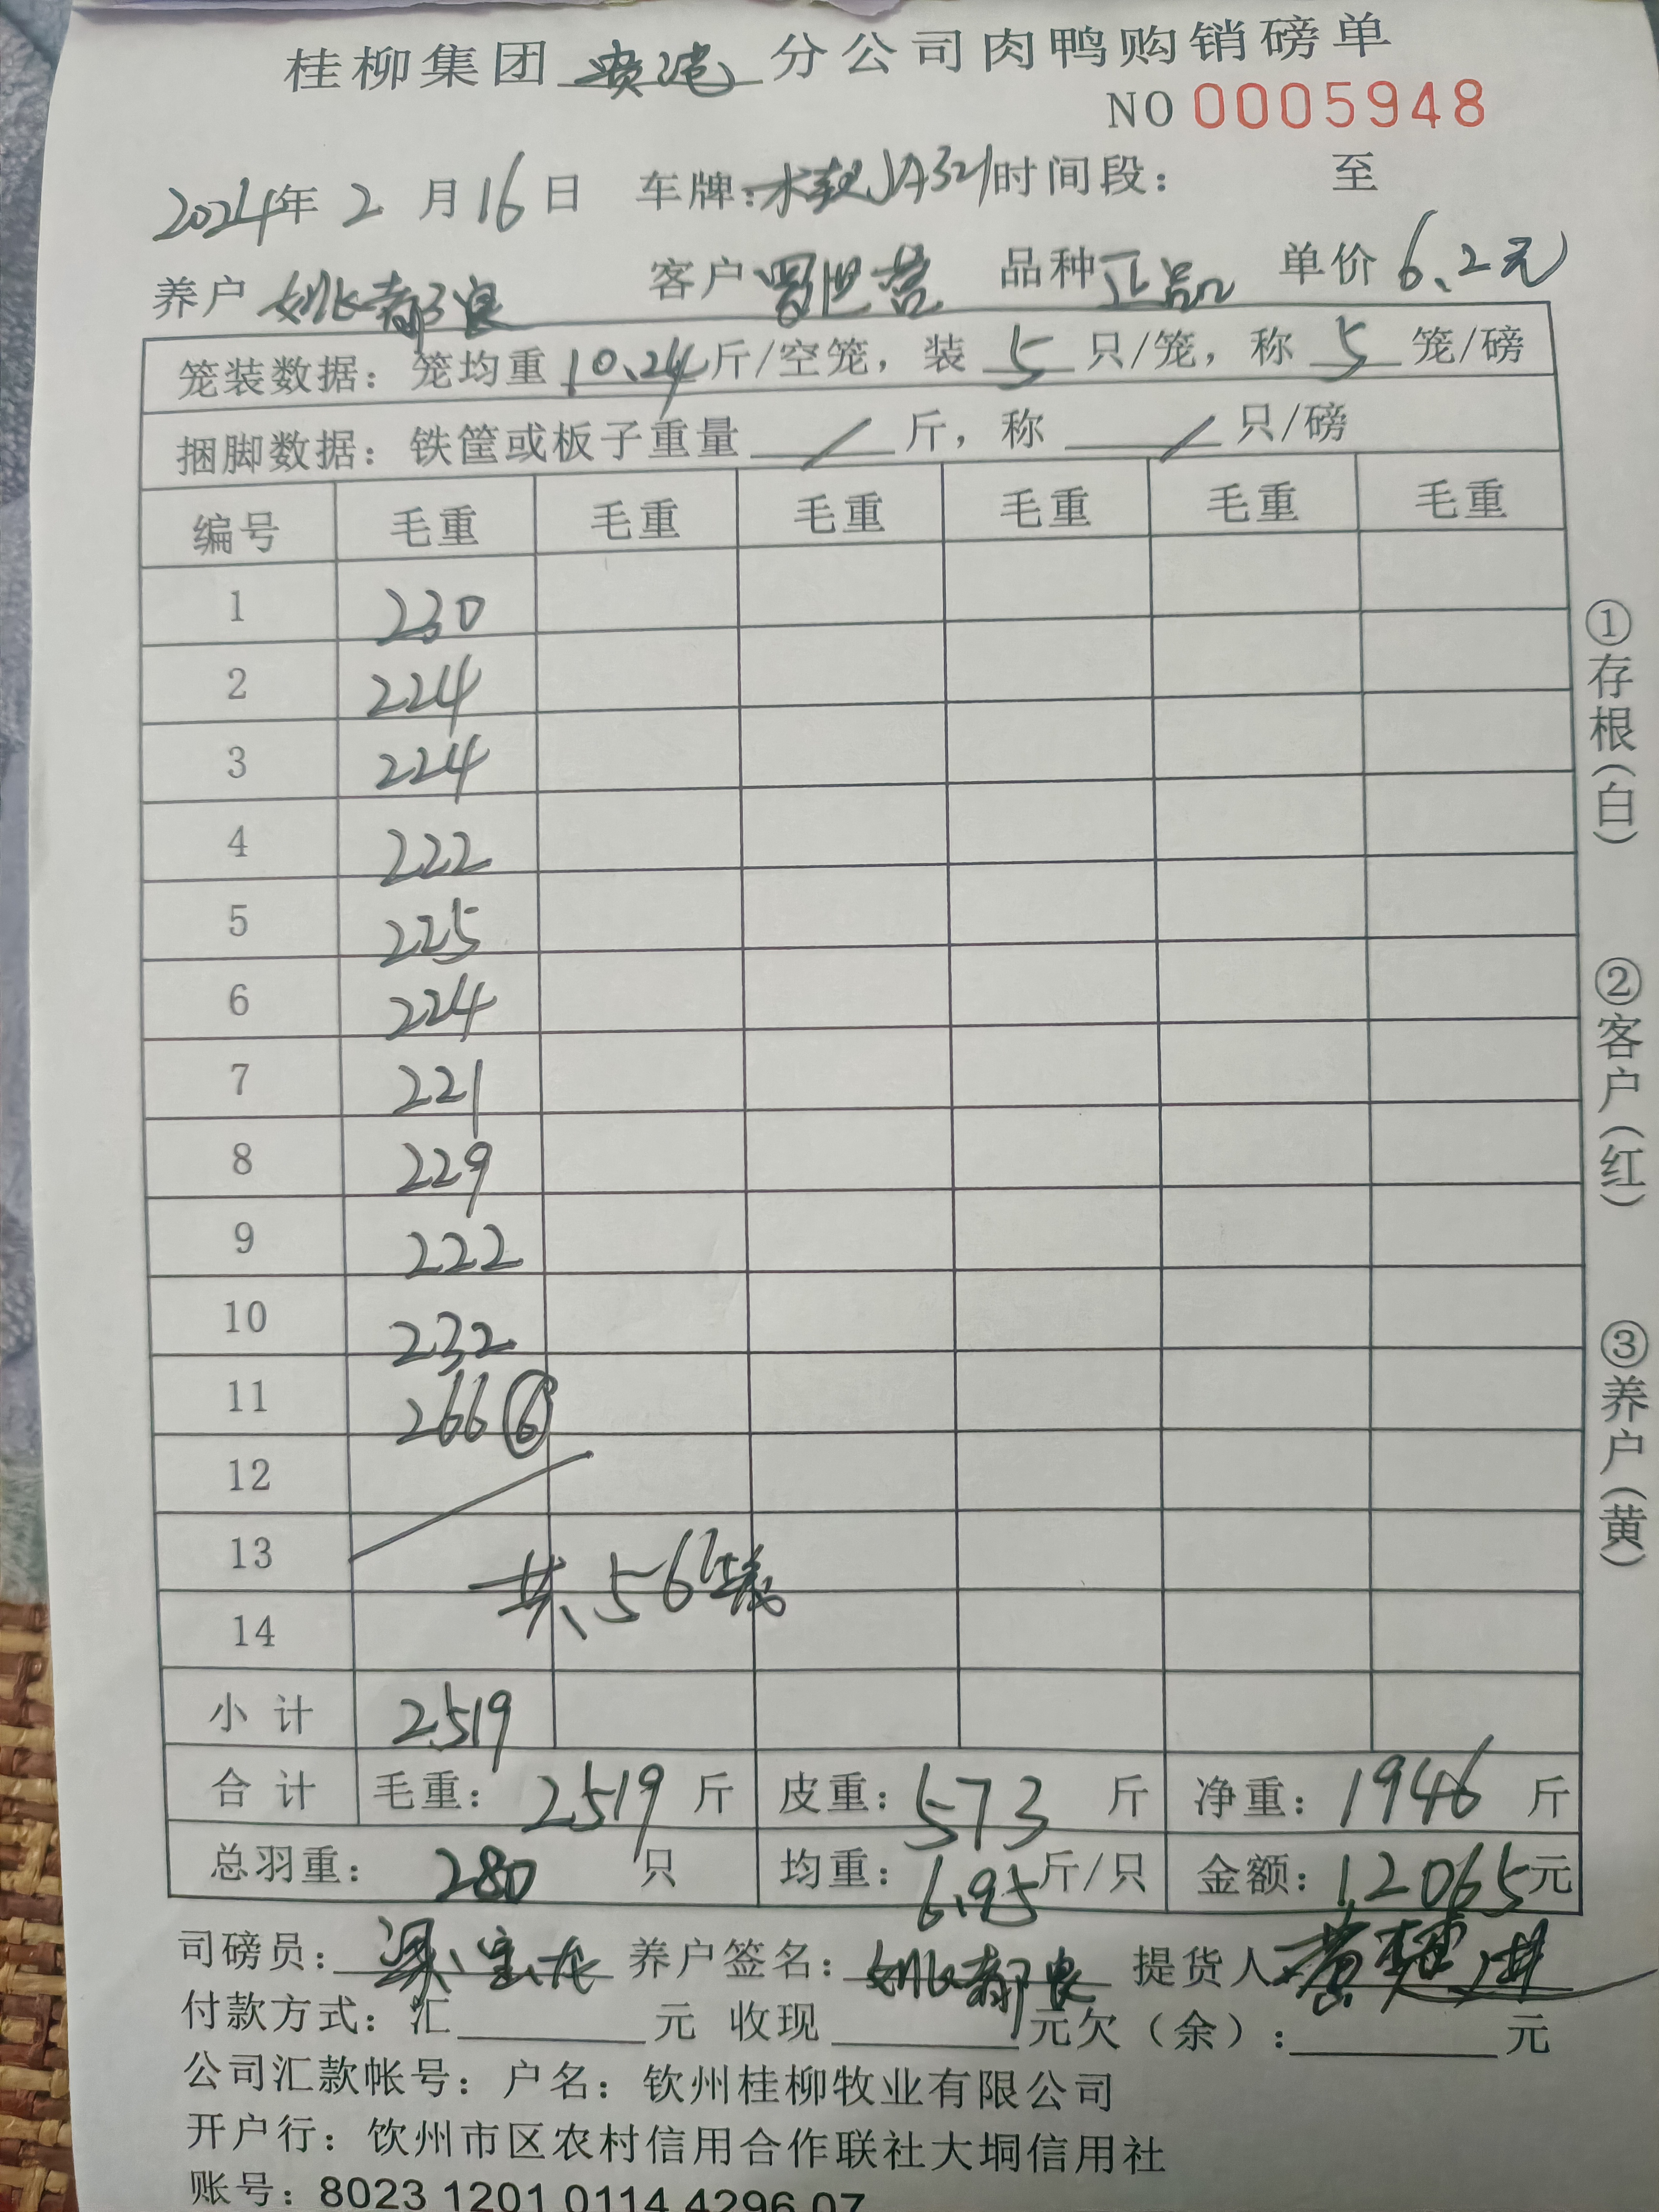 桂柳集团贵港分公司肉鸭购销磅单
NO 0005948
2024年2月16日 车牌: JA321 时间段: 至
养户 姚都良 客户 罗世营 品种 正品 单价 6.2元
笼装数据: 笼均重 10.24 斤/空笼, 装 5 只/笼, 称 5 笼/磅
捆脚数据: 铁筐或板子重量 / 斤, 称 / 只/磅
编号 毛重 毛重 毛重 毛重 毛重 毛重
1 230
2 224
3 224
4 222
5 225
6 224
7 221
8 229
9 222
10 232
11 266 ⑥
12
13
共56笼
14
小计 2519
合计 毛重: 2519 斤 皮重: 573 斤 净重: 1946 斤
总羽重: 280 只 均重: 6.95 斤/只 金额: 12065元
司磅员: 梁宝龙 养户签名: 姚都良 提货人: 黄
付款方式: 汇 元 收现 元欠(余): 元
公司汇款帐号: 户名: 钦州桂柳牧业有限公司
开户行: 饮州市区农村信用合作联社大垌信用社
账号: 8023 1201 0114 4296 07
①存根(白)
②客户(红)
③养户(黄)